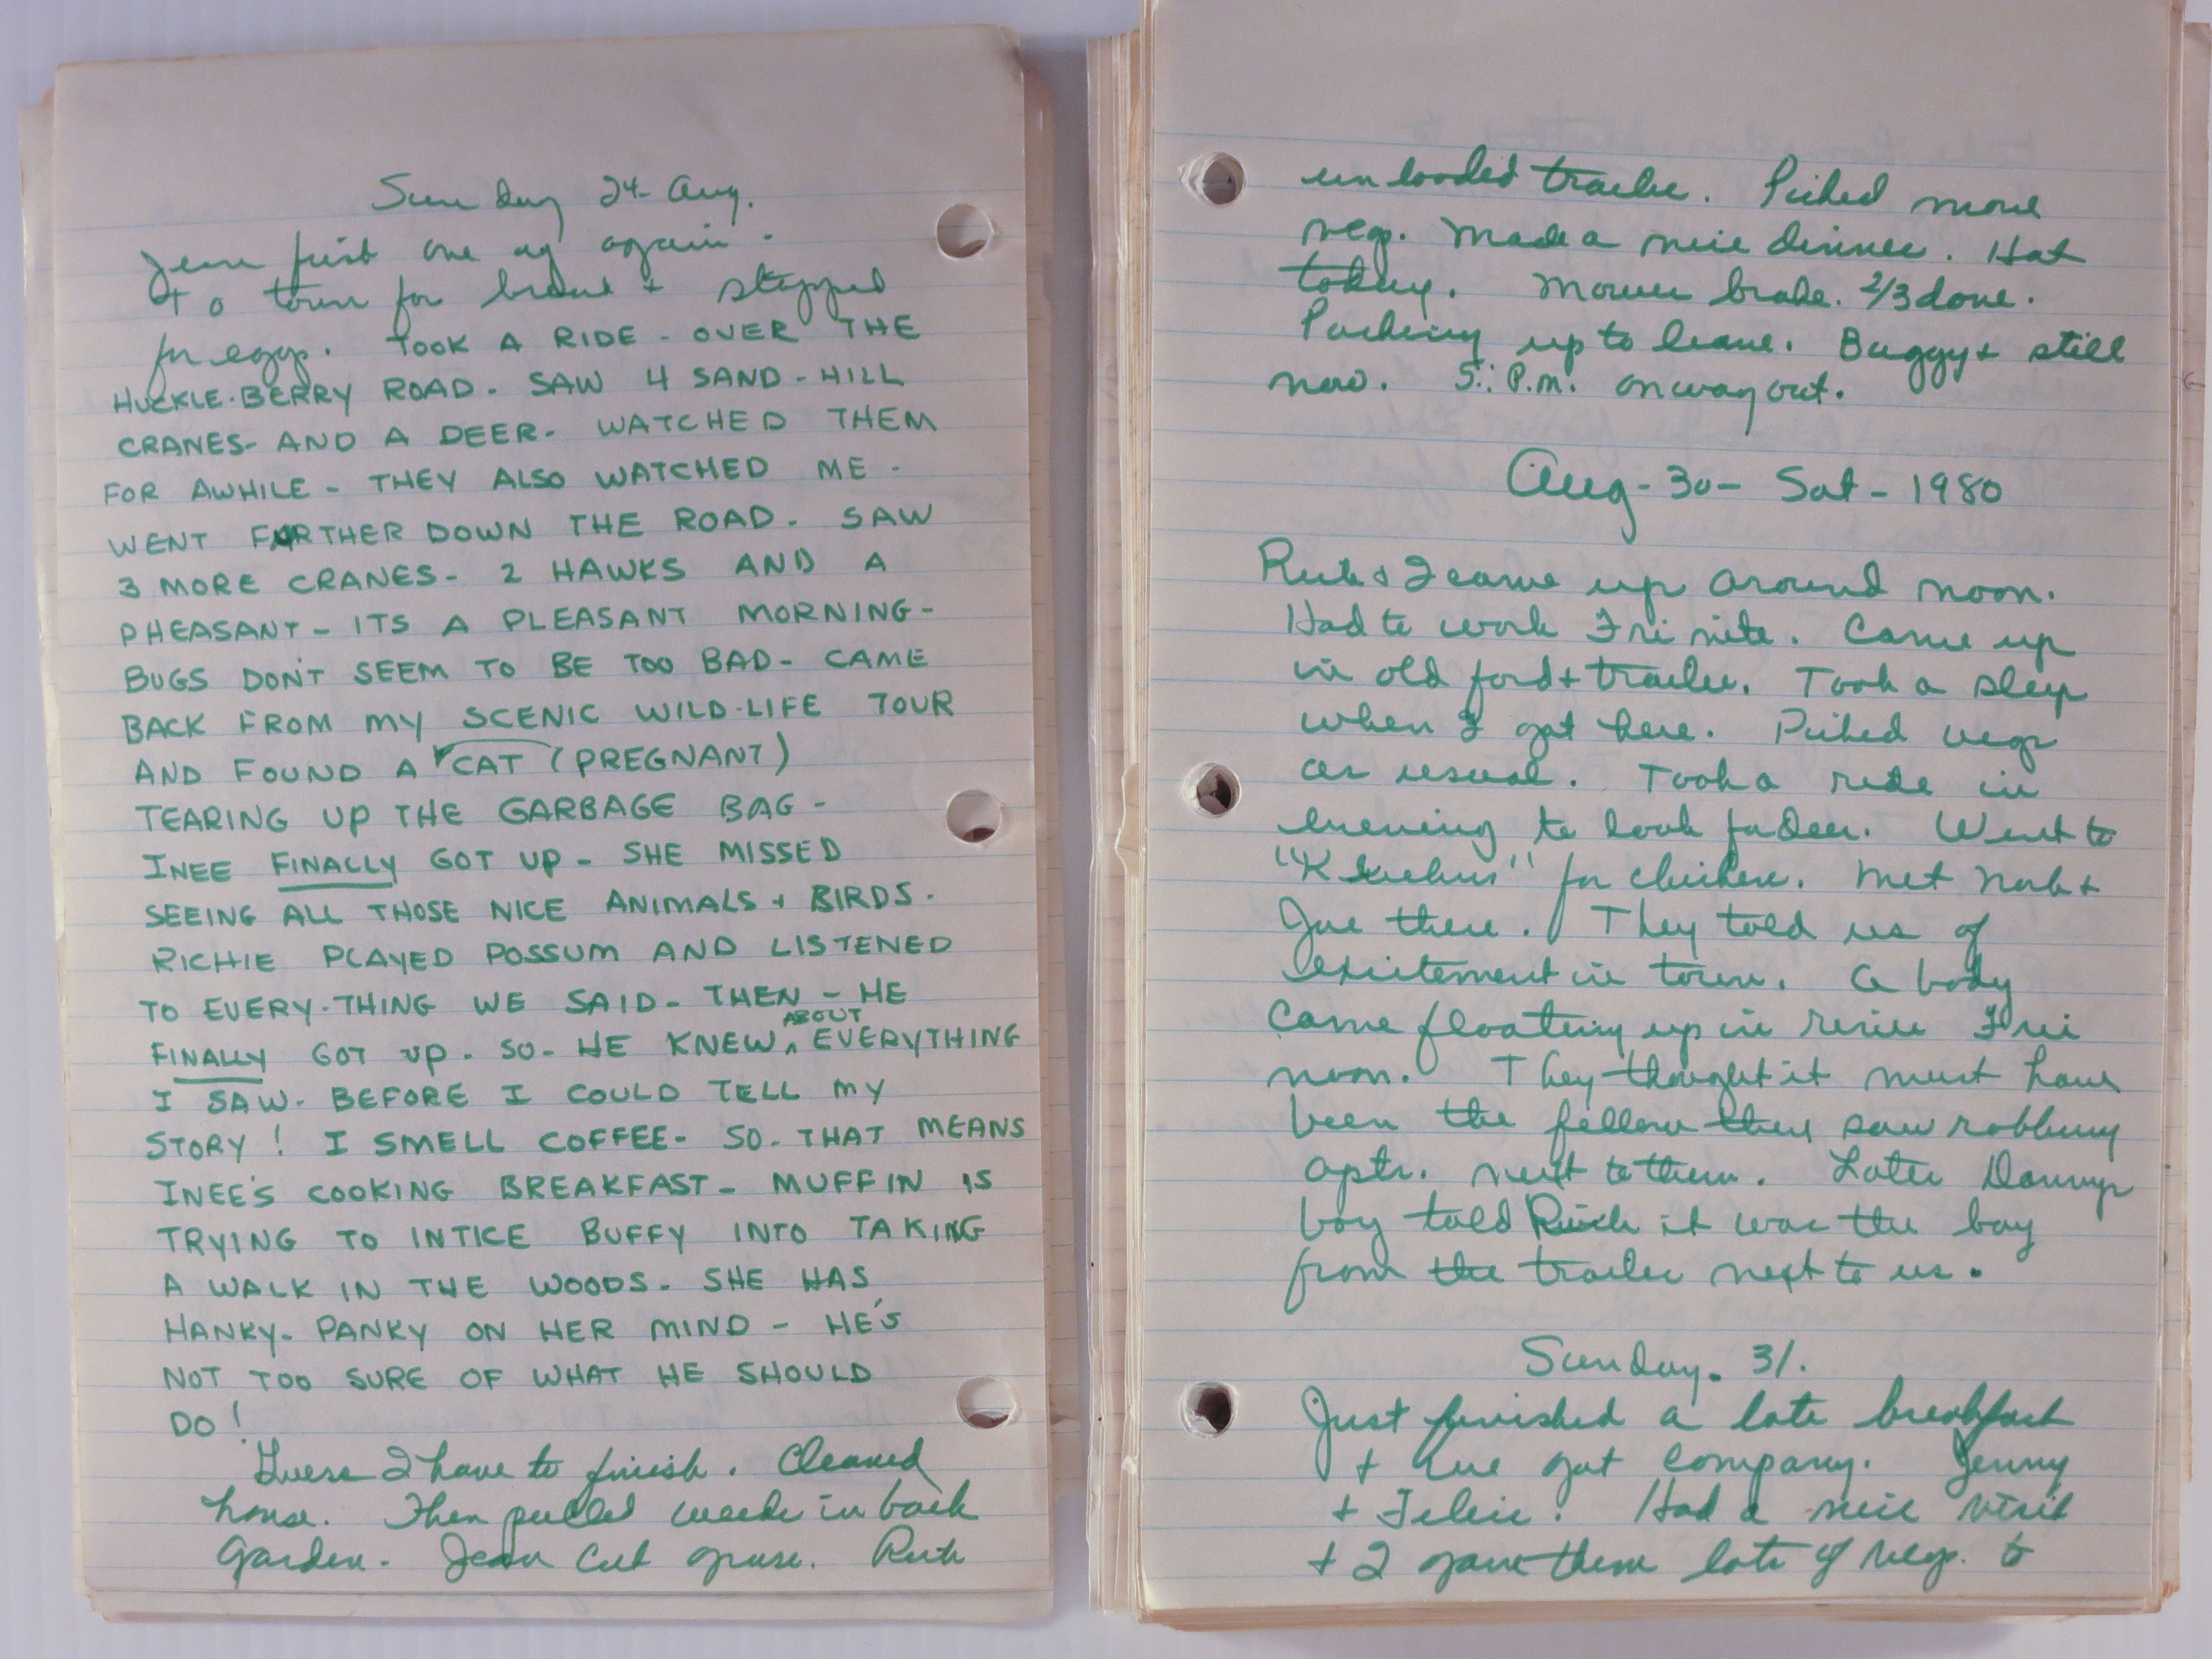 Sunday 24- Aug.
Jean first one up again -
+ o town for bread + stopped
for eggs. TOOK A RIDE - OVER THE
HUCKLE-BERRY ROAD - SAW 4 SAND-HILL
CRANES- AND A DEER- WATCHED THEM
FOR AWHILE - THEY ALSO WATCHED ME -
WENT FARTHER DOWN THE ROAD - SAW
3 MORE CRANES - 2 HAWKS AND A
PHEASANT - ITS A PLEASANT MORNING -
BUGS DON'T SEEM TO BE TOO BAD - CAME
BACK FROM MY SCENIC WILD-LIFE TOUR
AND FOUND A CAT (PREGNANT)
TEARING UP THE GARBAGE BAG -
INEE FINALLY GOT UP - SHE MISSED
SEEING ALL THOSE NICE ANIMALS + BIRDS.
RICHIE PLAYED POSSUM AND LISTENED
TO EVERY-THING WE SAID - THEN - HE
FINALLY GOT UP - SO - HE KNEW ABOUT EVERYTHING
I SAW - BEFORE I COULD TELL MY
STORY! I SMELL COFFEE - SO - THAT MEANS
INEE'S COOKING BREAKFAST - MUFFIN IS
TRYING TO INTICE BUFFY INTO TAKING
A WALK IN THE WOODS - SHE HAS
HANKY-PANKY ON HER MIND - HE'S
NOT TOO SURE OF WHAT HE SHOULD
DO!
Guess I have to finish. Cleaned
house. Then pulled weeds in back
Garden. Jean cut grass. Rich
unloaded trailer. Picked more
veg. Made a nice dinner. Hot
today. Mower broke. 2/3 done.
Packing up to leave. Buggy + still
now. 5:: P.M. on way out.
Aug-30- Sat-1980
Rich + I came up around noon.
Had to work Fri nite. Came up
in old ford + trailer. Took a sleep
when I got here. Picked vegs
as usual. Took a ride in
evening to look for deer. Went to
for chicken. Met Norb +
Joe there. They told us of
excitement in town. A body
came floating up in river Fri
noon. They thought it must have
been the fellow they saw robbing
apts. next to them. Later Dannys
boy told Rich it was the boy
from the trailer next to us.
Sunday. 31.
Just finished a late breakfast
+ we got company. Jenny
+ Felix. Had a nice visit
+ I gave them lots of veg. to